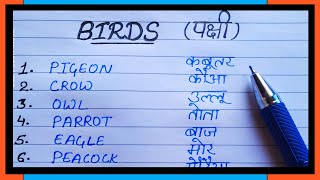 BIRDS (पक्षी)
1. PIGEON कबूतर
2. CROW कौआ
3. OWL उल्लू
4. PARROT तोता
5. EAGLE बाज
6. PEACOCK मोर